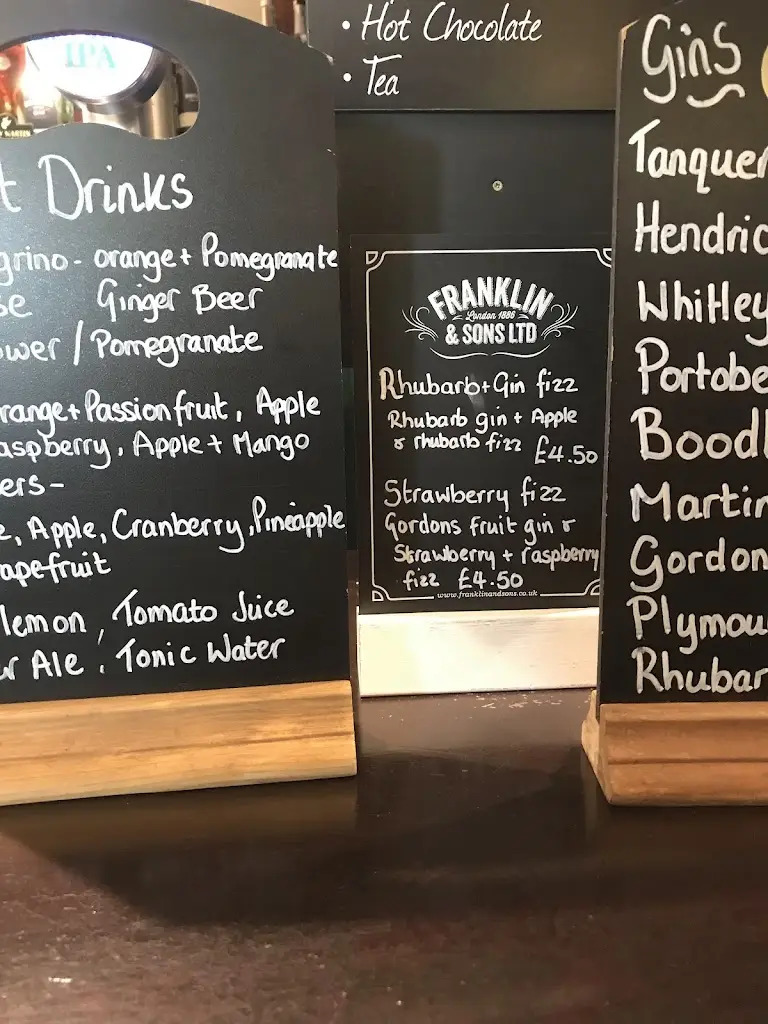 IPA
t Drinks
grino - orange + Pomegranate
se Ginger Beer
ower / Pomegranate
range + Passionfruit, Apple
aspberry, Apple + Mango
ers -
e, Apple, Cranberry, Pineapple
apefruit
lemon, Tomato Juice
r Ale, Tonic Water
• Hot Chocolate
• Tea
FRANKLIN
London 1886
& SONS LTD
Rhubarb + Gin fizz
Rhubarb gin + Apple
& rhubarb fizz £4.50
Strawberry fizz
Gordons fruit gin &
Strawberry + raspberry
fizz £4.50
www.franklinandsons.co.uk
Gins
Tanquer
Hendric
Whitley
Portobe
Boodl
Martin
Gordon
Plymou
Rhubar